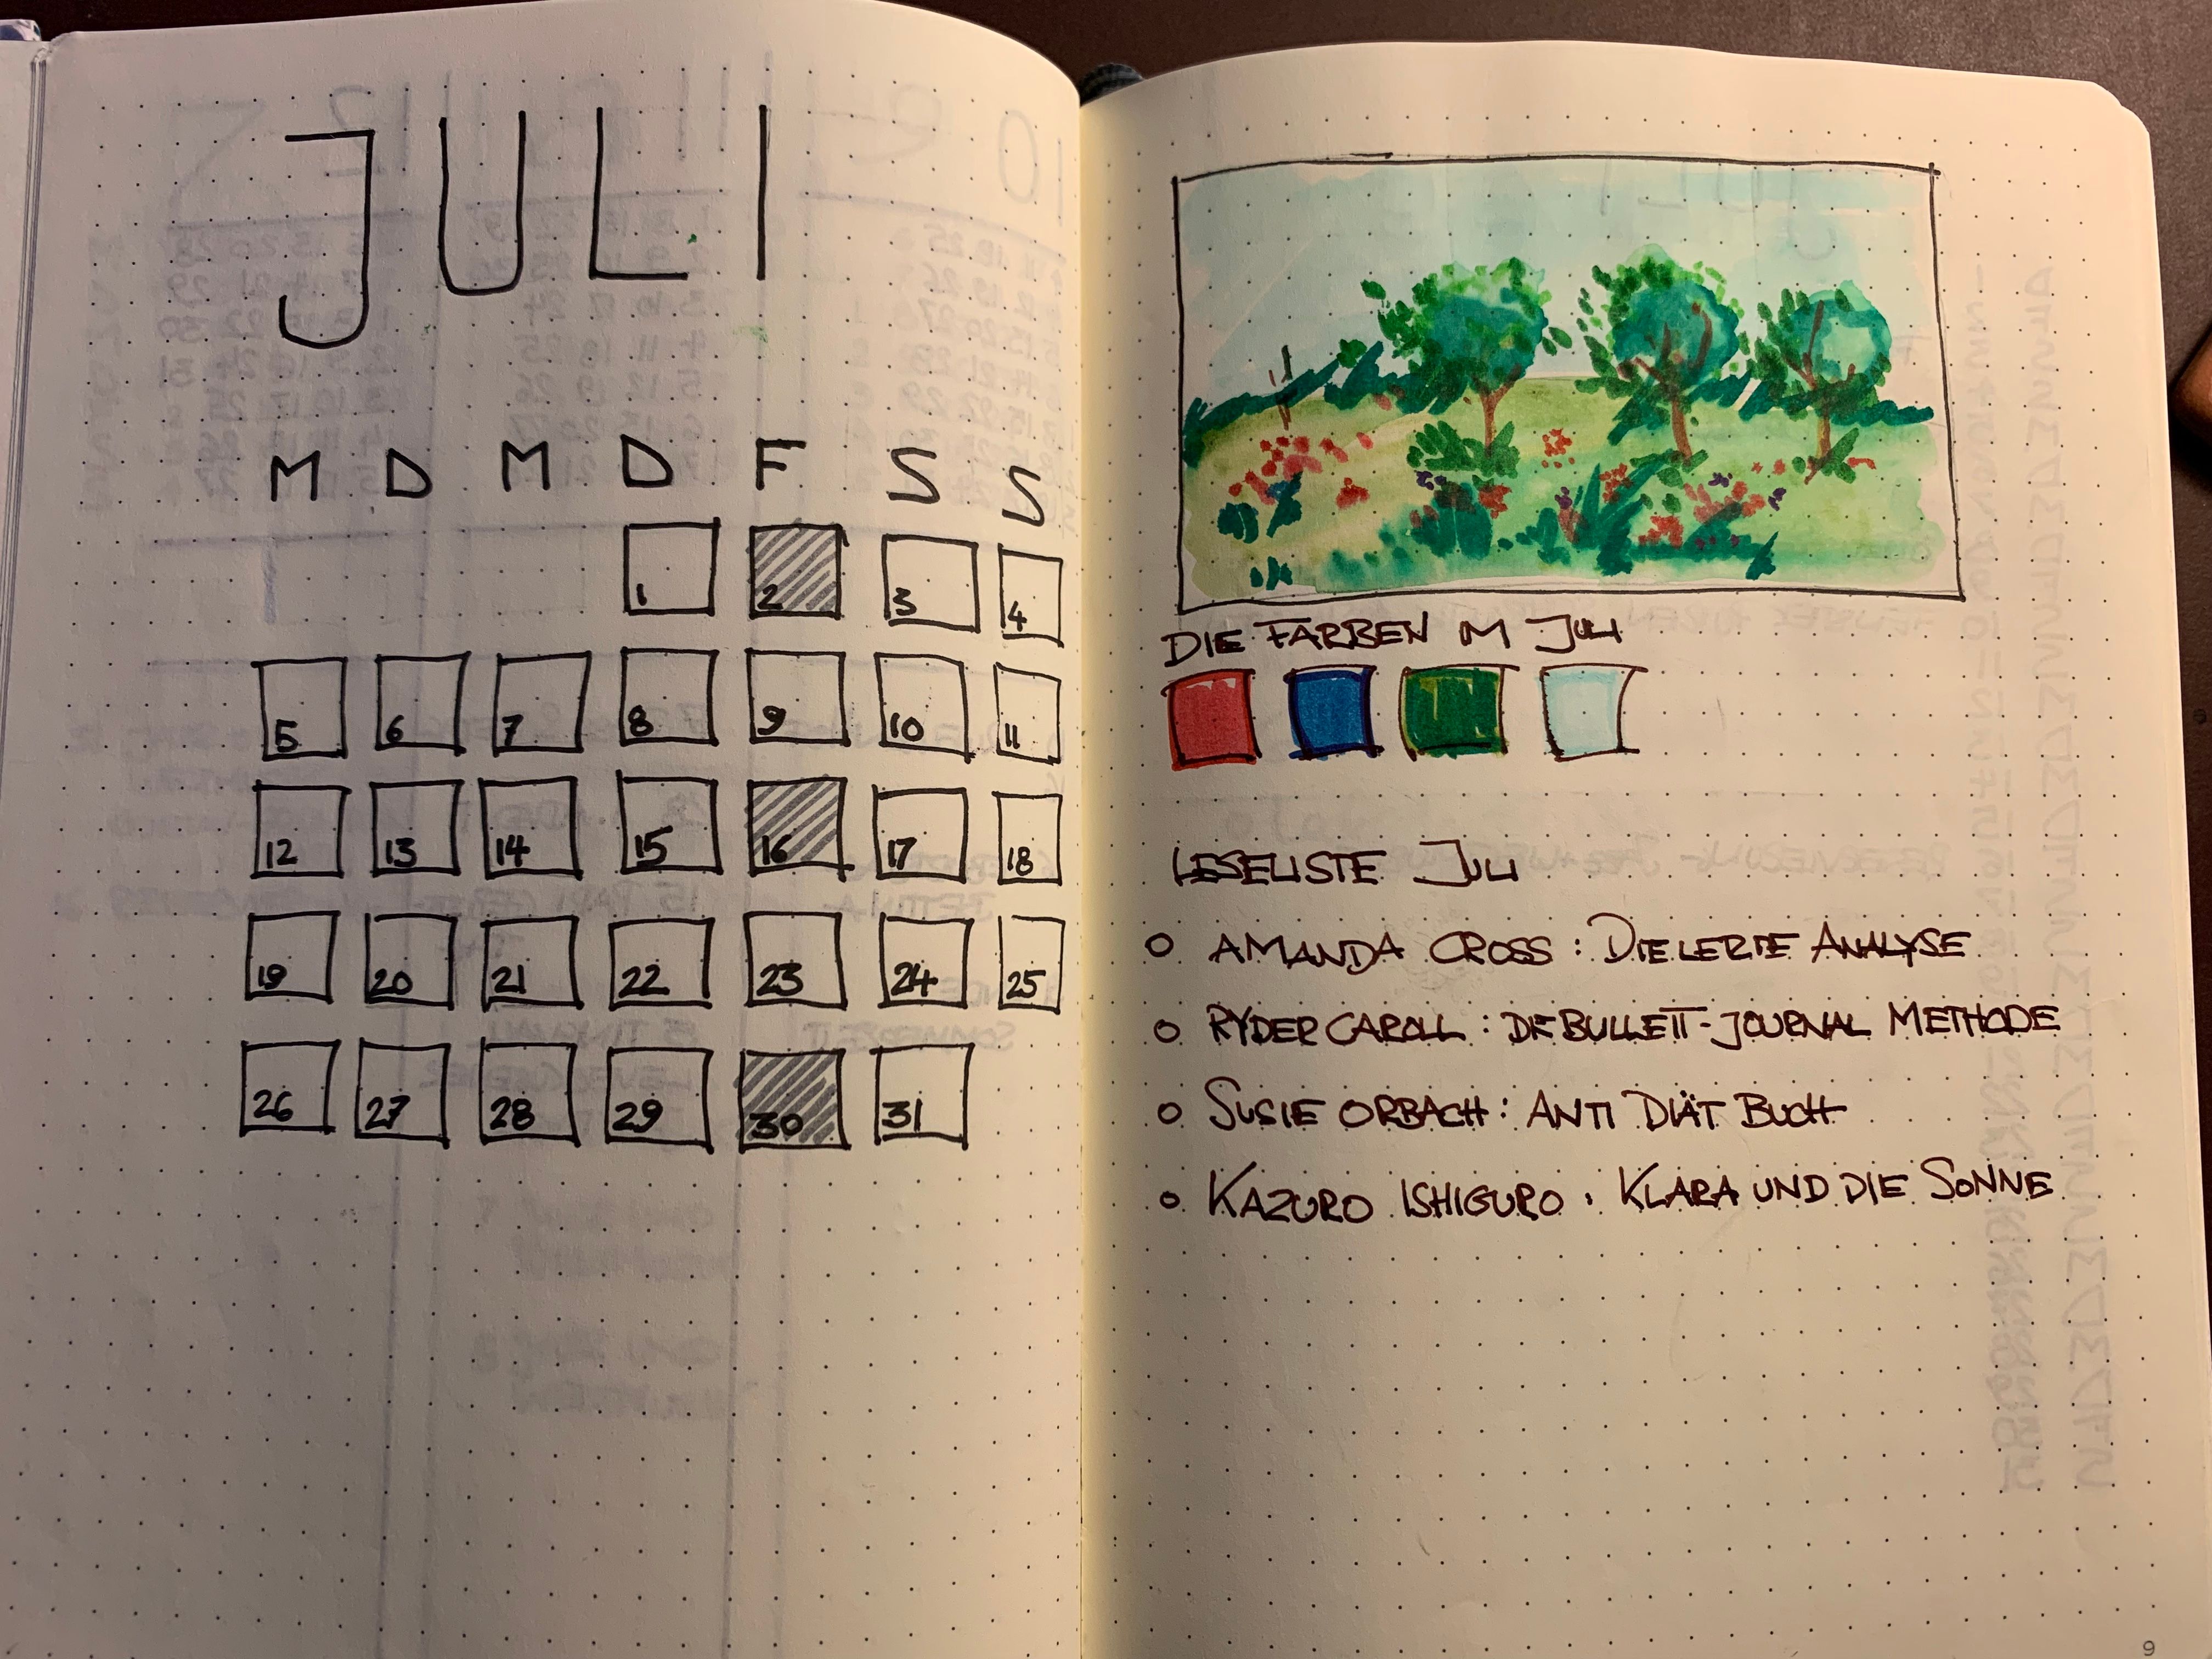 JULI
M D M D F S S
1 2 3 4
5 6 7 8 9 10 11
12 13 14 15 16 17 18
19 20 21 22 23 24 25
26 27 28 29 30 31
DIE FARBEN IM JULI
LESELISTE JULI
O AMANDA CROSS : DIE LERTE ANALYSE
O RYDER CAROLL : DIE BULLETT-JOURNAL METHODE
O SUSIE ORBACH : ANTI DIÄT BUCH
O KAZURO ISHIGURO : KLARA UND DIE SONNE
9